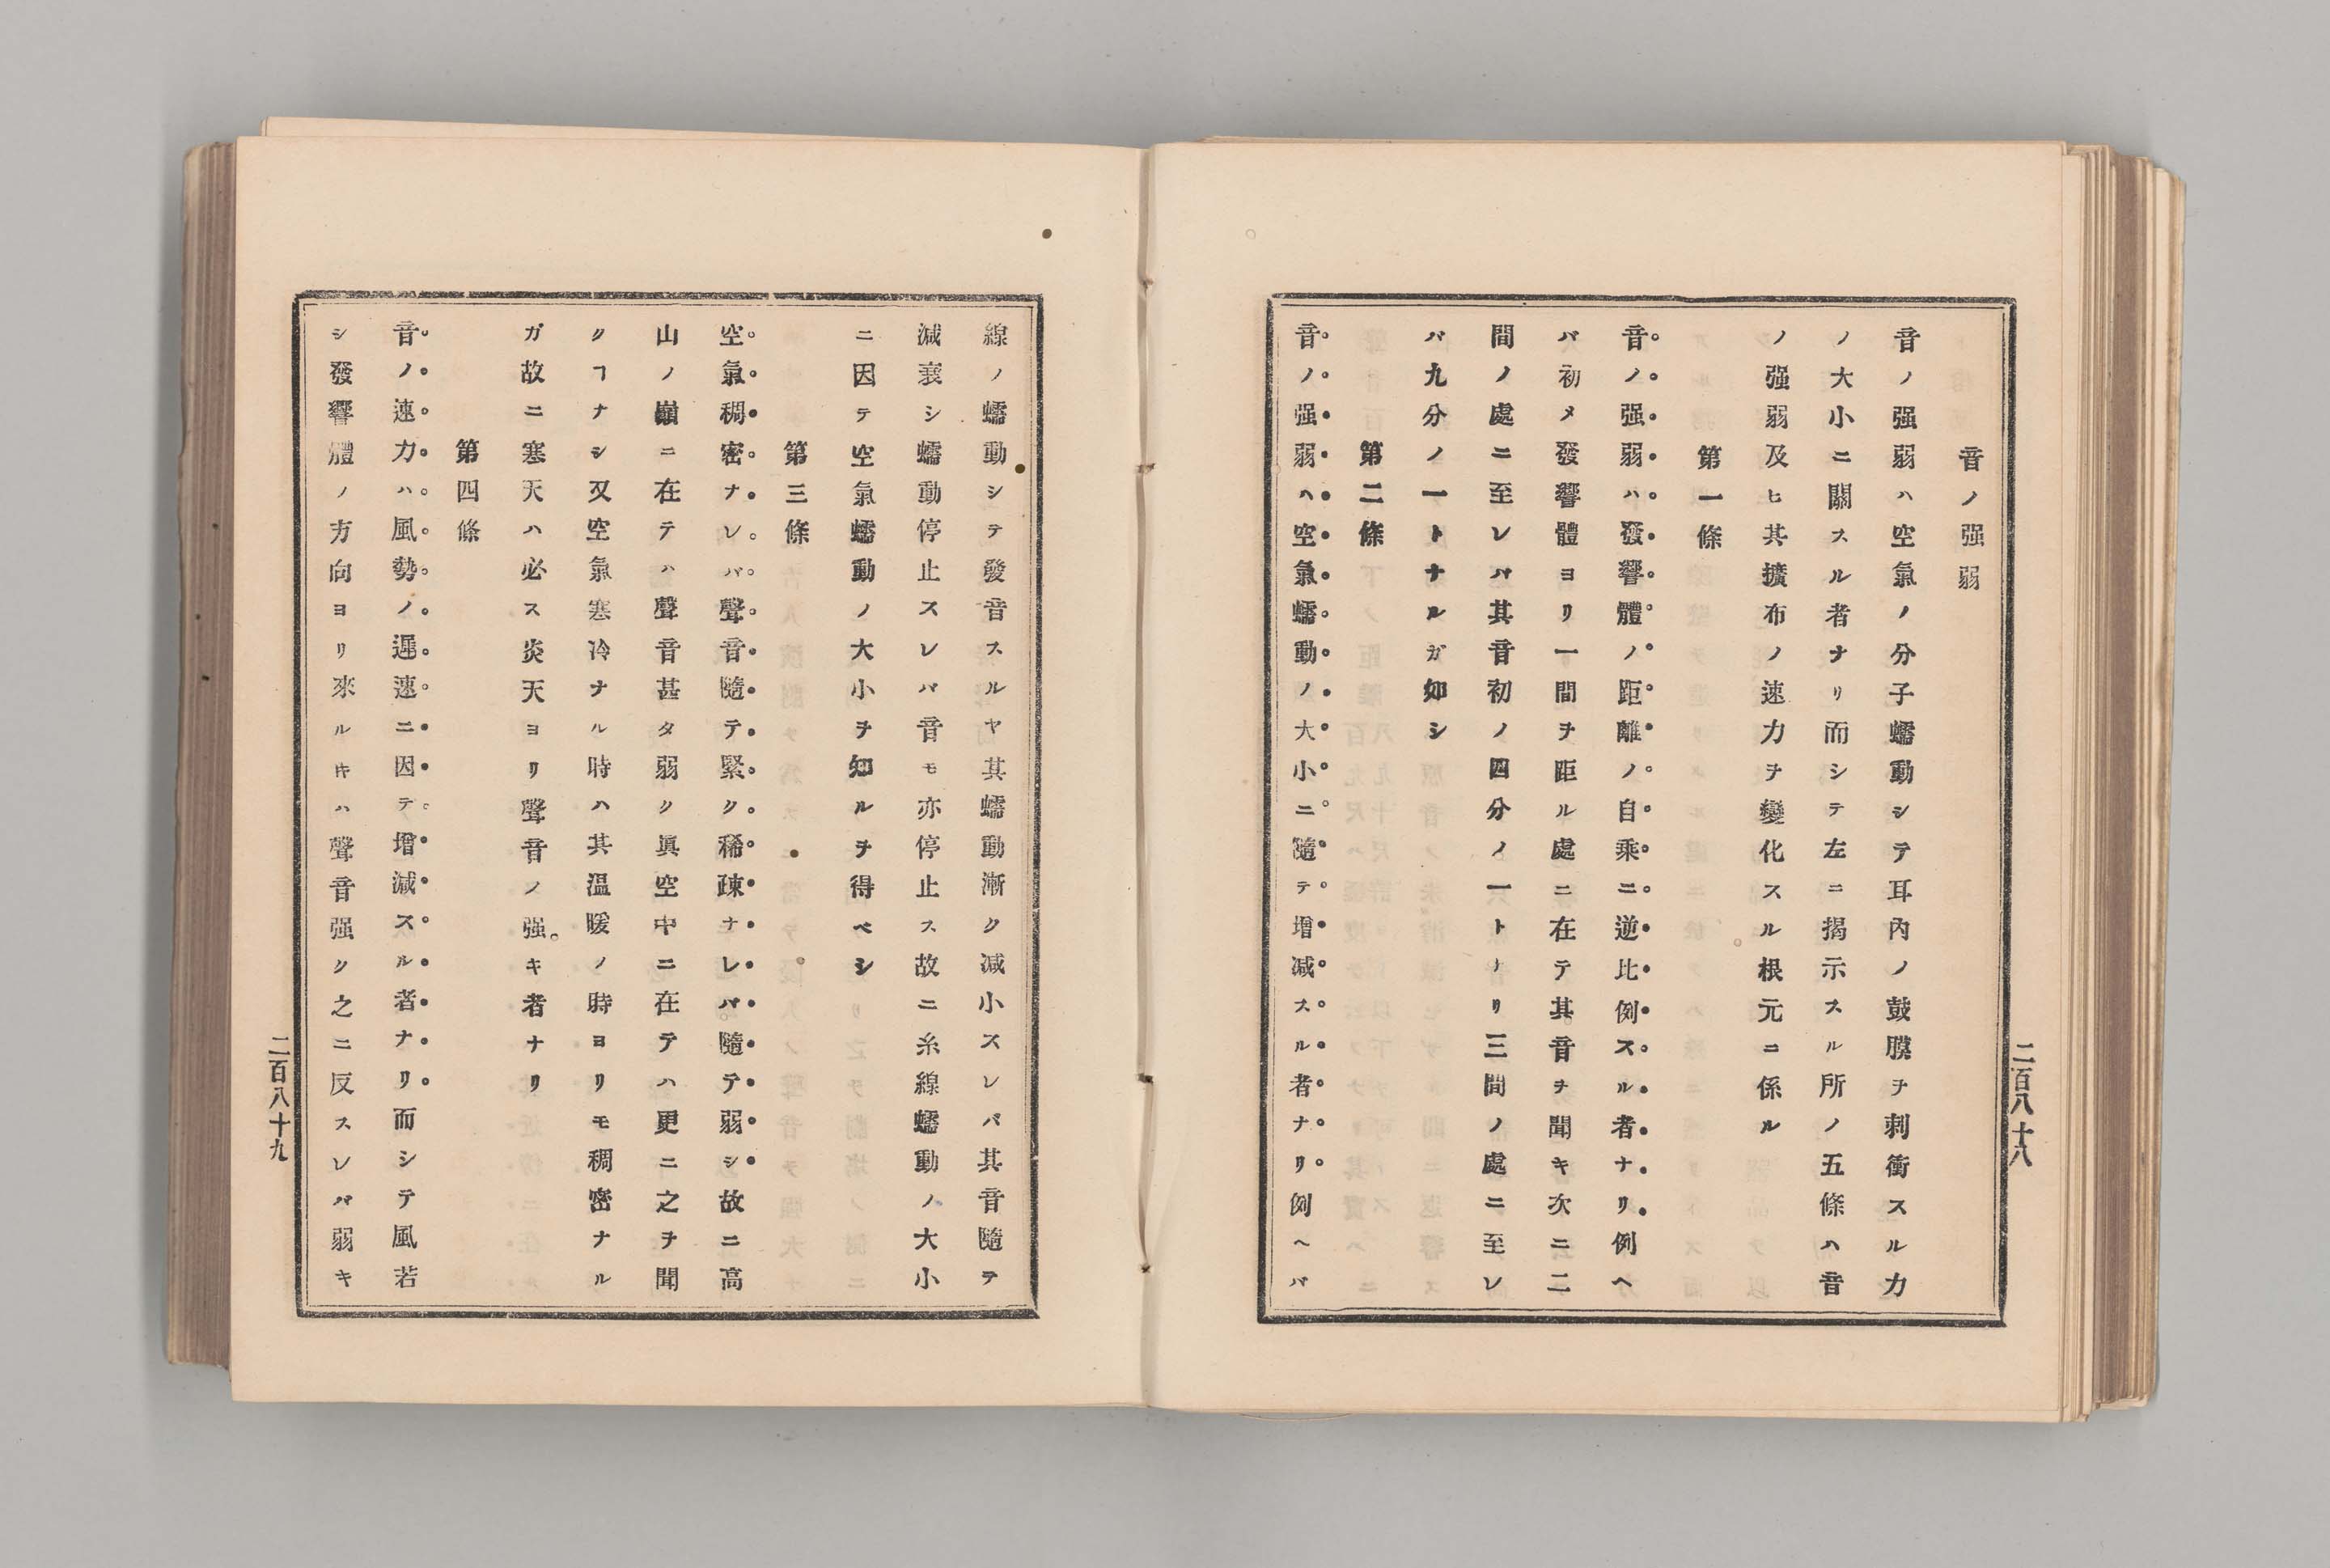 二百八十八
音ノ强弱
音ノ强弱ハ空氣ノ分子蠕動シテ耳內ノ鼓膜ヲ刺衝スル力
ノ大小ニ關スル者ナリ而シテ左ニ揭示スル所ノ五條ハ音
ノ强弱及ヒ其擴布ノ速力ヲ變化スル根元ニ係ル
第一條
音ノ强弱ハ發響體ノ距離ノ自乘ニ逆比例スル者ナリ例ヘ
バ初メ發響體ヨリ一間ヲ距ル處ニ在テ其音ヲ聞キ次ニ二
間ノ處ニ至レバ其音初ノ四分ノ一トナリ三間ノ處ニ至レ
バ九分ノ一トナルガ如シ
第二條
音ノ强弱ハ空氣蠕動ノ大小ニ隨テ增減スル者ナリ例ヘバ
線ノ蠕動シテ發音スルヤ其蠕動漸ク減小スレバ其音隨テ
減衰シ蠕動停止スレバ音モ亦停止ス故ニ糸線蠕動ノ大小
ニ因テ空氣蠕動ノ大小ヲ知ルヲ得ベシ
第三條
空氣稠密ナレバ聲音隨テ緊ク稀疎ナレバ隨テ弱シ故ニ高
山ノ巓ニ在テハ聲音甚タ弱ク眞空中ニ在テハ更ニ之ヲ聞
クヿナシ又空氣寒冷ナル時ハ其溫暖ノ時ヨリモ稠密ナル
ガ故ニ寒天ハ必ス炎天ヨリ聲音ノ强キ者ナリ
第四條
音ノ速力ハ風勢ノ遲速ニ因テ增減スル者ナリ而シテ風若
シ發響體ノ方向ヨリ來ルキハ聲音强ク之ニ反スレバ弱キ
二百八十九